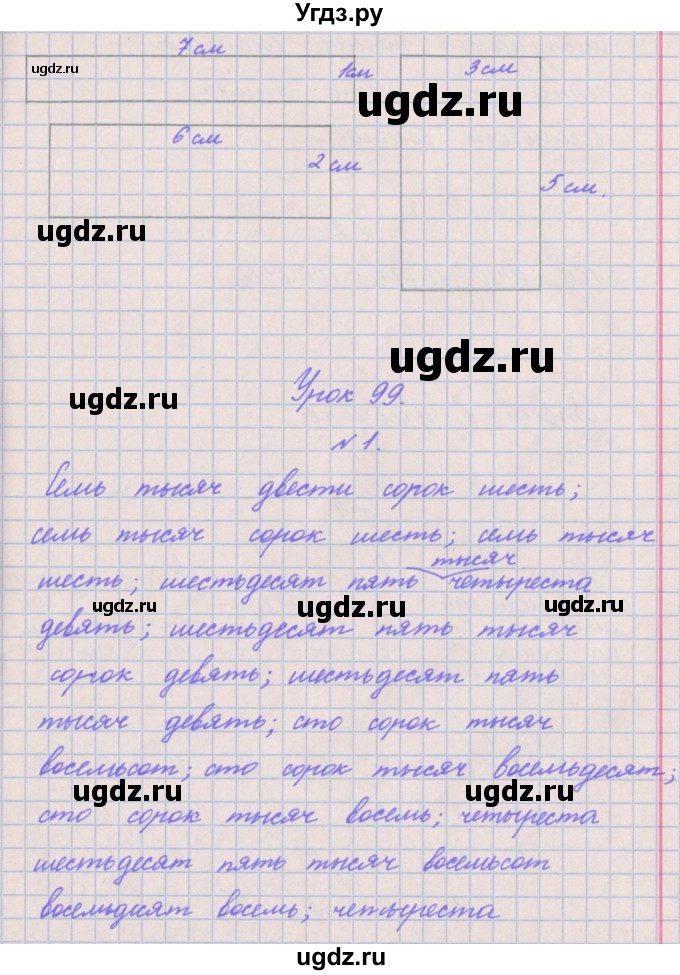 Угдз.ру
7 см
ugdz.ru
1см
3 см
ugdz.ru
6 см
2 см
5 см.
ugdz.ru
ugdz.ru
Урок 99.
ugdz.ru
№ 1.
Семь тысяч двести сорок шесть;
семь тысяч сорок шесть; семь тысяч
тысяч
шесть; шестьдесят пять четыреста
ugdz.ru ugdz.ru ugdz.ru
девять; шестьдесят пять тысяч
сорок девять; шестьдесят пять
тысяч девять; сто сорок тысяч
восемьсот; сто сорок тысяч восемьдесят;
ugdz.ru ugdz.ru
сто сорок тысяч восемь; четыреста
шестьдесят пять тысяч восемьсот
восемьдесят восемь; четыреста
ugdz.ru